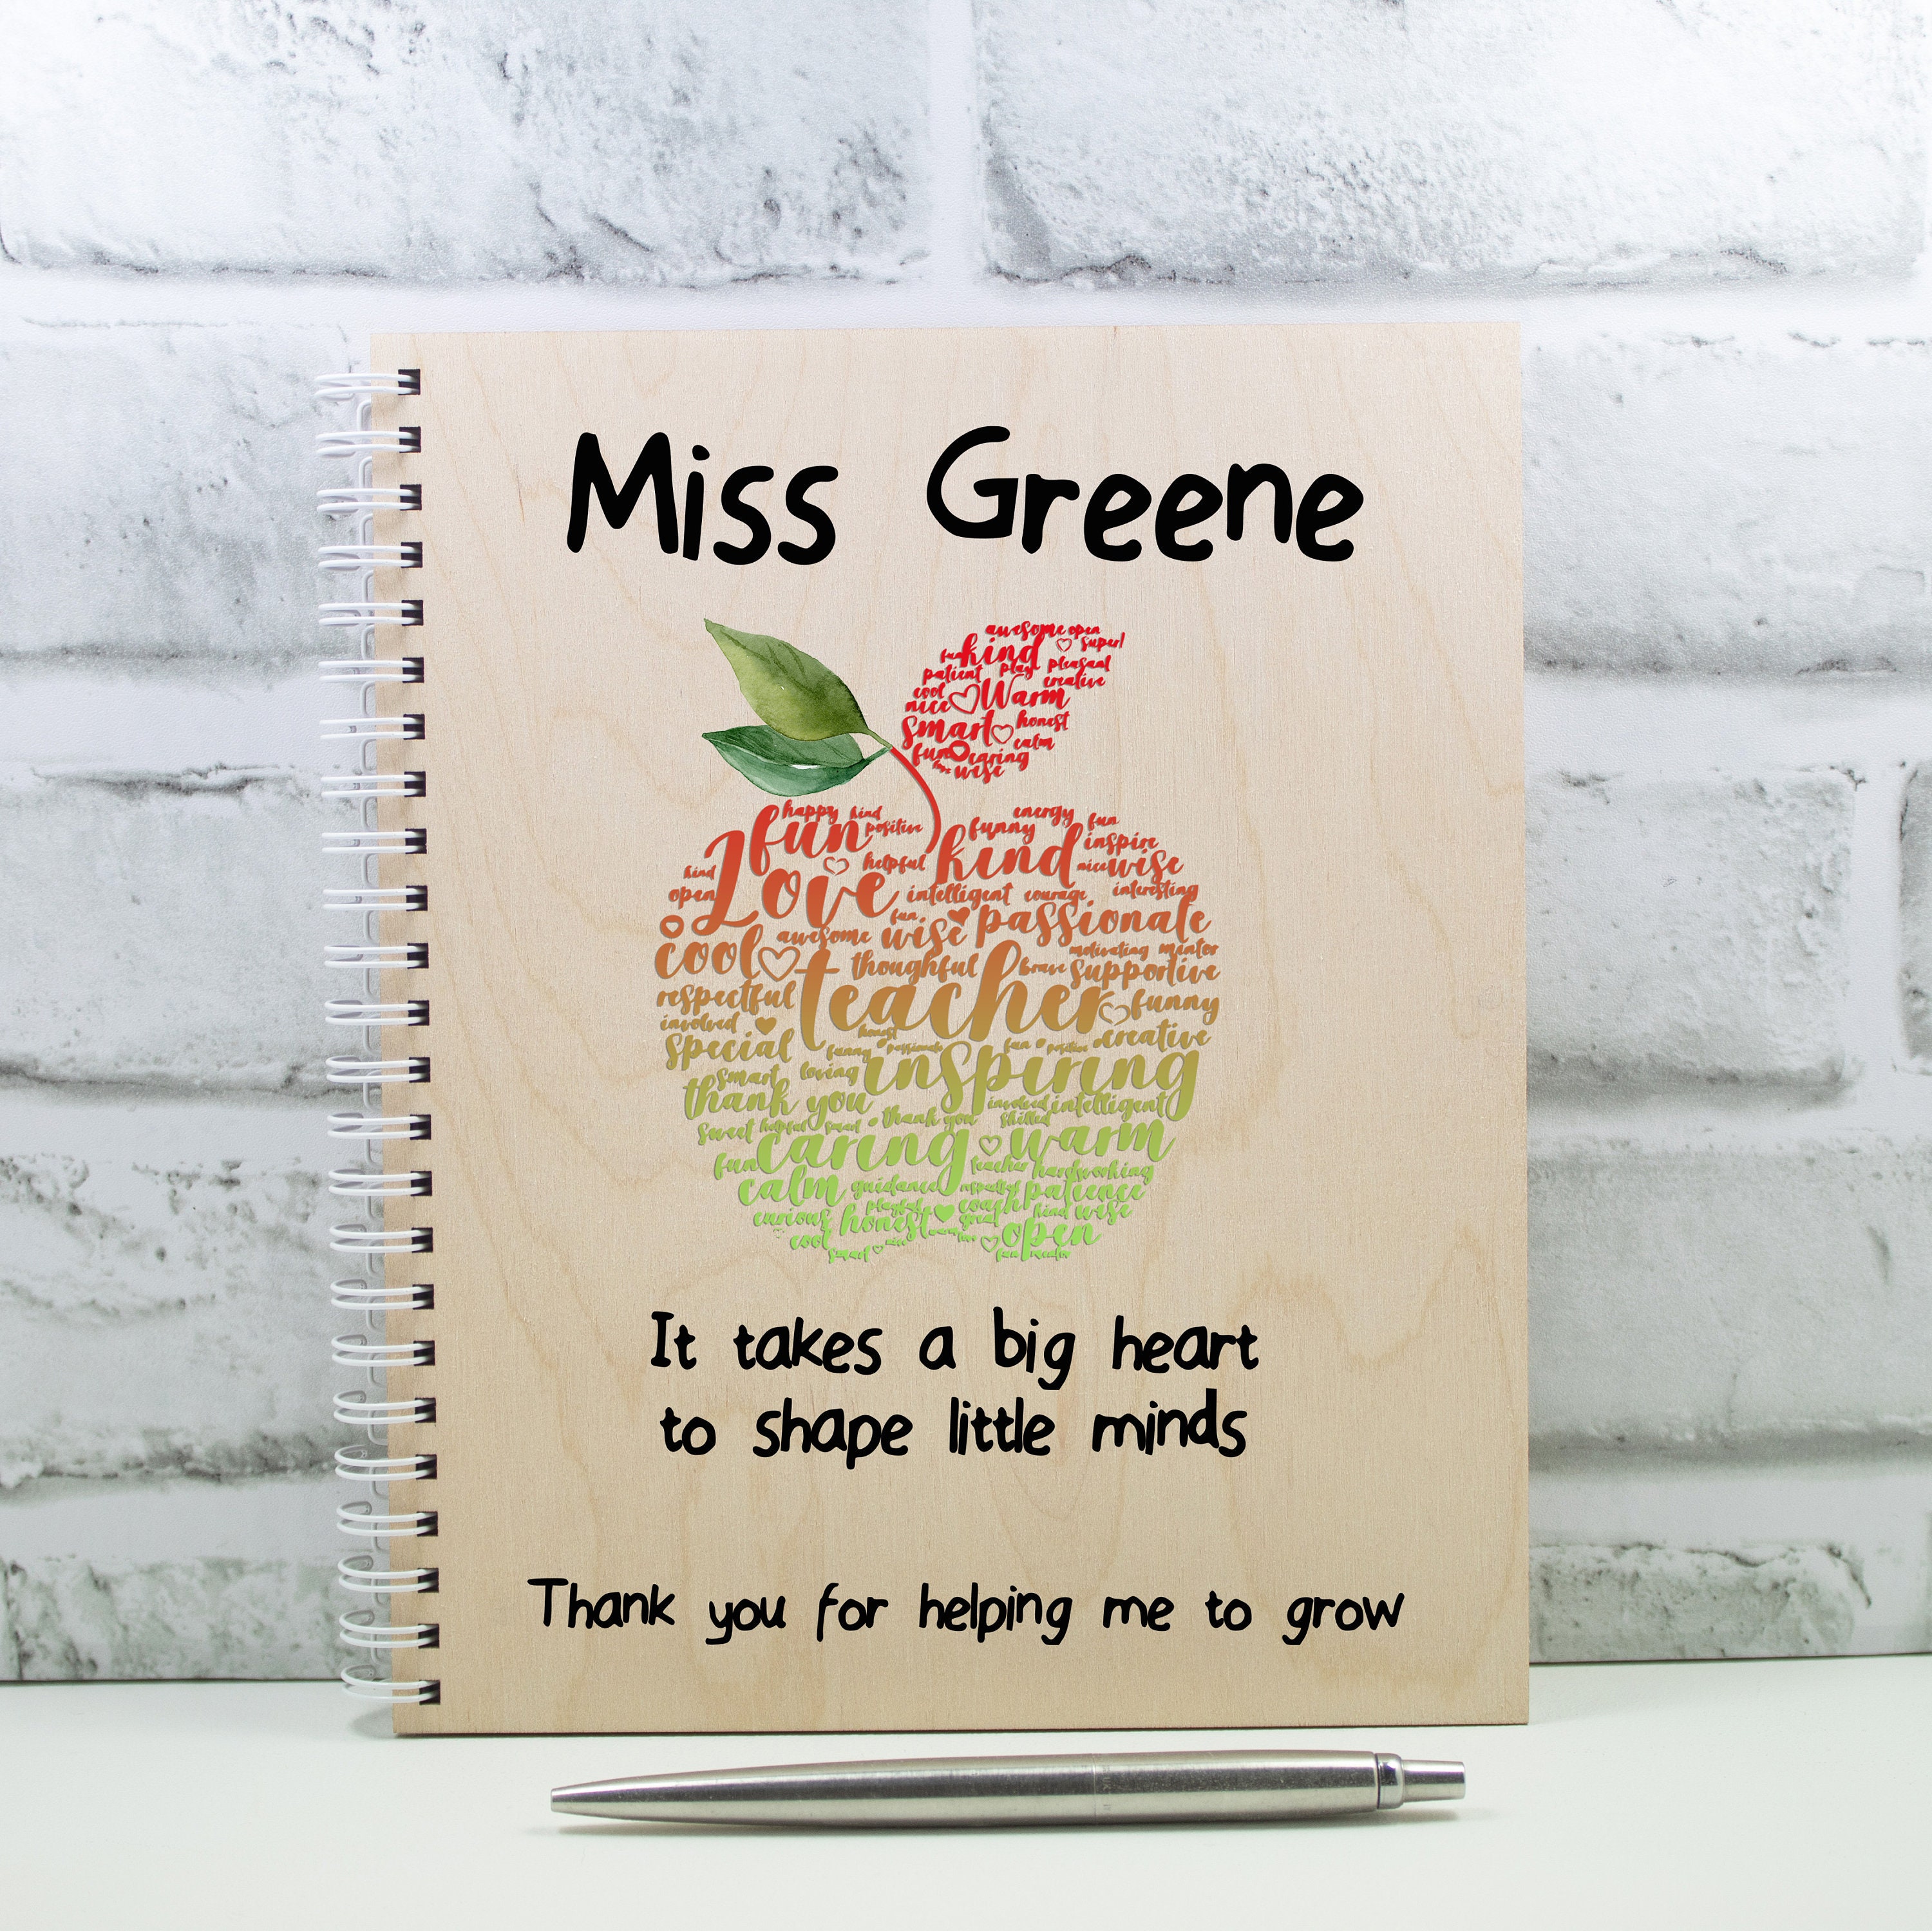 Miss Greene
awesome open
fun kind super!
patient play pleasant
cool creative
nice Warm
smart honest
fun calm
caring
love wise
happy kind energy
fun positive funny fun
Love helpful kind inspire
kind nice wise
open intelligent courage interesting
fun
cool awesome wise passionate
motivating mentor
thoughtful brave supportive
respectful teacher funny
involved honest
special funny passionate fun positive creative
smart loving inspiring
thank you involved intelligent
sweet helpful smart thank you skilled
caring warm
fun teacher hardworking
calm guidance respectful patience
playful coach
curious honest great kind wise
cool open
smart nice love
fun mentor
It takes a big heart
to shape little minds
Thank you for helping me to grow